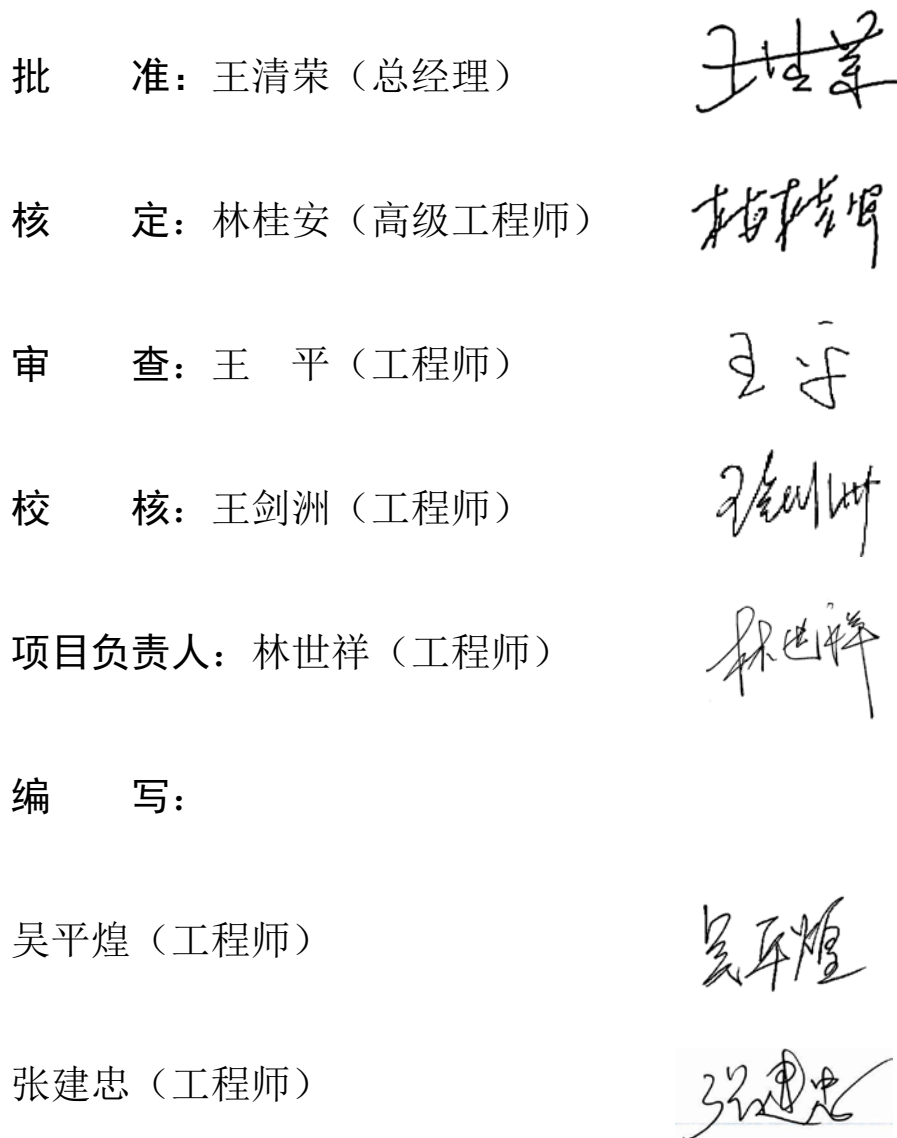 批　　准：王清荣（总经理）
核　　定：林桂安（高级工程师）
审　　查：王　平（工程师） 王平
校　　核：王剑洲（工程师） 王剑洲
项目负责人：林世祥（工程师） 林世祥
编　　写：
吴平煌（工程师） 吴平煌
张建忠（工程师） 张建忠